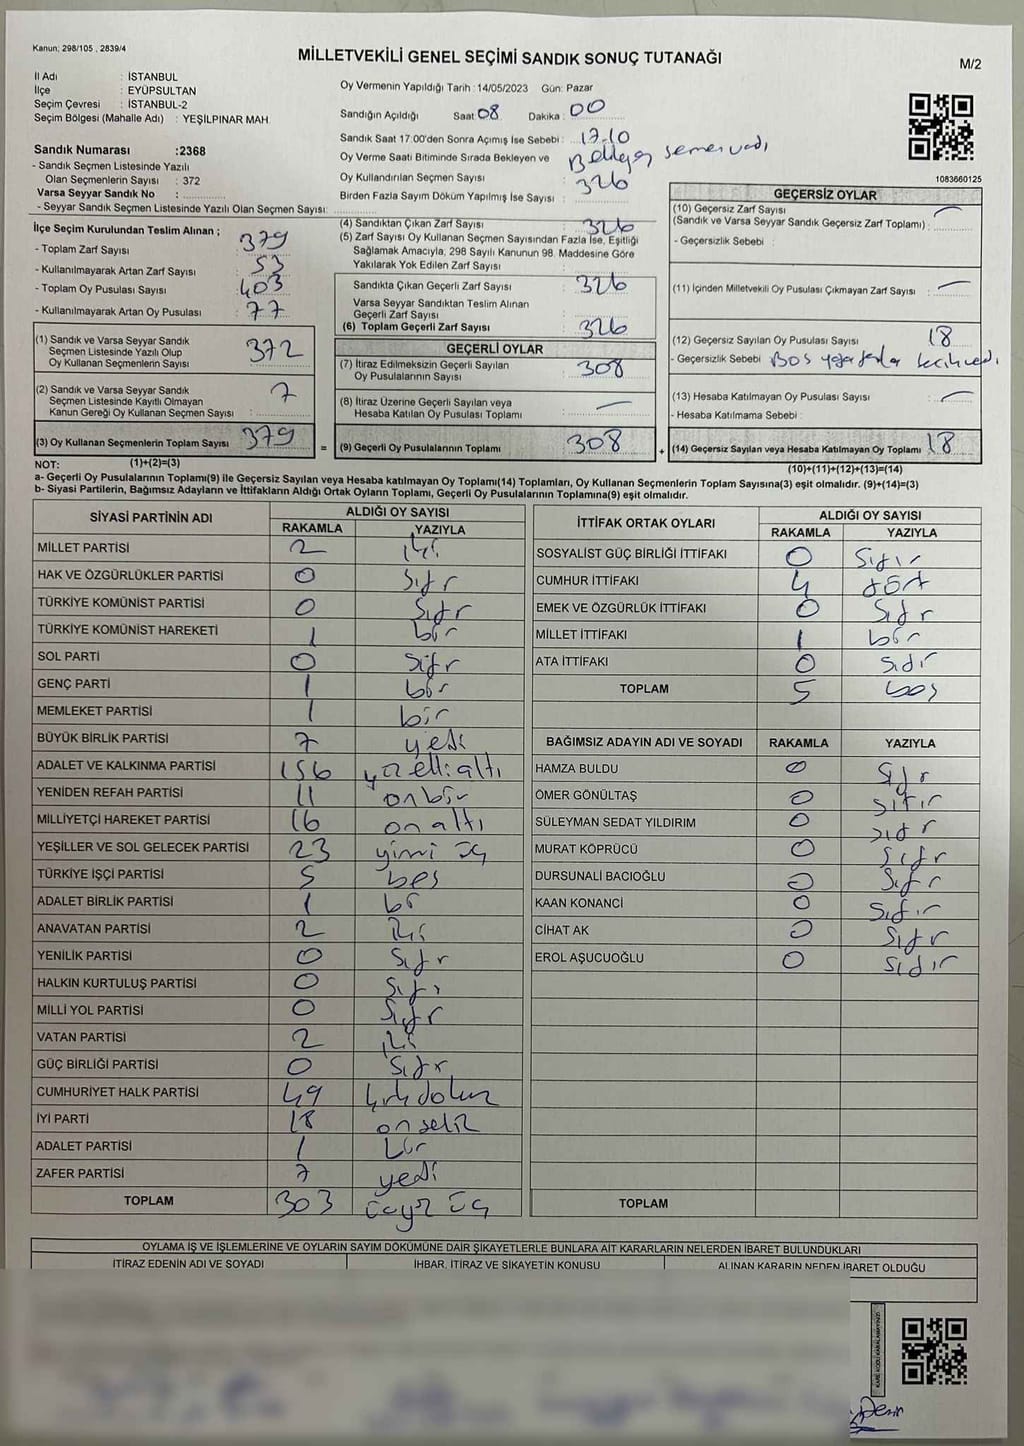 Kanun; 298/105 , 2839/4
MİLLETVEKİLİ GENEL SEÇİMİ SANDIK SONUÇ TUTANAĞI
M/2
İl Adı : İSTANBUL
İlçe : EYÜPSULTAN
Seçim Çevresi : İSTANBUL-2
Seçim Bölgesi (Mahalle Adı) : YEŞİLPINAR MAH
Sandık Numarası :2368
- Sandık Seçmen Listesinde Yazılı
Olan Seçmenlerin Sayısı : 372
Varsa Seyyar Sandık No :
- Seyyar Sandık Seçmen Listesinde Yazılı Olan Seçmen Sayısı:
Oy Vermenin Yapıldığı Tarih : 14/05/2023 Gün: Pazar
Sandığın Açıldığı Saat : 08 Dakika : 00
Sandık Saat 17.00'den Sonra Açımış İse Sebebi : 17.10
Oy Verme Saati Bitiminde Sırada Bekleyen ve
Oy Kullandırılan Seçmen Sayısı : 326
Birden Fazla Sayım Döküm Yapılmış İse Sayısı :
1083660125
İlçe Seçim Kurulundan Teslim Alınan ;
- Toplam Zarf Sayısı : 379
- Kullanılmayarak Artan Zarf Sayısı : 53
- Toplam Oy Pusulası Sayısı : 403
- Kullanılmayarak Artan Oy Pusulası : 77
(1) Sandık ve Varsa Seyyar Sandık
Seçmen Listesinde Yazılı Olup
Oy Kullanan Seçmenlerin Sayısı : 372
(2) Sandık ve Varsa Seyyar Sandık
Seçmen Listesinde Kayıtlı Olmayan
Kanun Gereği Oy Kullanan Seçmen Sayısı : 7
(3) Oy Kullanan Seçmenlerin Toplam Sayısı : 379
(1)+(2)=(3)
(4) Sandıktan Çıkan Zarf Sayısı : 326
(5) Zarf Sayısı Oy Kullanan Seçmen Sayısından Fazla İse, Eşitliği
Sağlamak Amacıyla, 298 Sayılı Kanunun 98. Maddesine Göre
Yakılarak Yok Edilen Zarf Sayısı :
Sandıkta Çıkan Geçerli Zarf Sayısı : 326
Varsa Seyyar Sandıktan Teslim Alınan
Geçerli Zarf Sayısı :
(6) Toplam Geçerli Zarf Sayısı : 326
GEÇERLİ OYLAR
(7) İtiraz Edilmeksizin Geçerli Sayılan
Oy Pusulalarının Sayısı : 308
(8) İtiraz Üzerine Geçerli Sayılan veya
Hesaba Katılan Oy Pusulası Toplamı : —
= (9) Geçerli Oy Pusulalarının Toplamı : 308
GEÇERSİZ OYLAR
(10) Geçersiz Zarf Sayısı : —
(Sandık ve Varsa Seyyar Sandık Geçersiz Zarf Toplamı) :
- Geçersizlik Sebebi :
(11) İçinden Milletvekili Oy Pusulası Çıkmayan Zarf Sayısı : —
(12) Geçersiz Sayılan Oy Pusulası Sayısı : 18
- Geçersizlik Sebebi :
(13) Hesaba Katılmayan Oy Pusulası Sayısı : —
- Hesaba Katılmama Sebebi :
+ (14) Geçersiz Sayılan veya Hesaba Katılmayan Oy Toplamı : 18
(10)+(11)+(12)+(13)=(14)
NOT:
a- Geçerli Oy Pusulalarının Toplamı(9) ile Geçersiz Sayılan veya Hesaba katılmayan Oy Toplamı(14) Toplamları, Oy Kullanan Seçmenlerin Toplam Sayısına(3) eşit olmalıdır. (9)+(14)=(3)
b- Siyasi Partilerin, Bağımsız Adayların ve İttifakların Aldığı Ortak Oyların Toplamı, Geçerli Oy Pusulalarının Toplamına(9) eşit olmalıdır.
SİYASİ PARTİNİN ADI ALDIĞI OY SAYISI
RAKAMLA YAZIYLA
MİLLET PARTİSİ 2 iki
HAK VE ÖZGÜRLÜKLER PARTİSİ 0 sıfır
TÜRKİYE KOMÜNİST PARTİSİ 0 sıfır
TÜRKİYE KOMÜNİST HAREKETİ 1 bir
SOL PARTİ 0 sıfır
GENÇ PARTİ 1 bir
MEMLEKET PARTİSİ 1 bir
BÜYÜK BİRLİK PARTİSİ 7 yedi
ADALET VE KALKINMA PARTİSİ 156 yüzelli altı
YENİDEN REFAH PARTİSİ 11 onbir
MİLLİYETÇİ HAREKET PARTİSİ 16 onaltı
YEŞİLLER VE SOL GELECEK PARTİSİ 23 yirmi üç
TÜRKİYE İŞÇİ PARTİSİ 5 beş
ADALET BİRLİK PARTİSİ 1 bir
ANAVATAN PARTİSİ 2 iki
YENİLİK PARTİSİ 0 sıfır
HALKIN KURTULUŞ PARTİSİ 0 sıfır
MİLLİ YOL PARTİSİ 0 sıfır
VATAN PARTİSİ 2 iki
GÜÇ BİRLİĞİ PARTİSİ 0 sıfır
CUMHURİYET HALK PARTİSİ 49 kırkdokuz
İYİ PARTİ 18 onsekiz
ADALET PARTİSİ 1 bir
ZAFER PARTİSİ 7 yedi
TOPLAM 303 üçyüz üç
İTTİFAK ORTAK OYLARI ALDIĞI OY SAYISI
RAKAMLA YAZIYLA
SOSYALİST GÜÇ BİRLİĞİ İTTİFAKI 0 sıfır
CUMHUR İTTİFAKI 4 dört
EMEK VE ÖZGÜRLÜK İTTİFAKI 0 sıfır
MİLLET İTTİFAKI 1 bir
ATA İTTİFAKI 0 sıfır
TOPLAM 5 beş
BAĞIMSIZ ADAYIN ADI VE SOYADI RAKAMLA YAZIYLA
HAMZA BULDU 0 sıfır
ÖMER GÖNÜLTAŞ 0 sıfır
SÜLEYMAN SEDAT YILDIRIM 0 sıfır
MURAT KÖPRÜCÜ 0 sıfır
DURSUNALİ BACIOĞLU 0 sıfır
KAAN KONANCİ 0 sıfır
CİHAT AK 0 sıfır
EROL AŞUCUOĞLU 0 sıfır
TOPLAM
OYLAMA İŞ VE İŞLEMLERİNE VE OYLARIN SAYIM DÖKÜMÜNE DAİR ŞİKAYETLERLE BUNLARA AİT KARARLARIN NELERDEN İBARET BULUNDUKLARI
İTİRAZ EDENİN ADI VE SOYADI İHBAR, İTİRAZ VE ŞİKAYETİN KONUSU ALINAN KARARIN NEDEN İBARET OLDUĞU